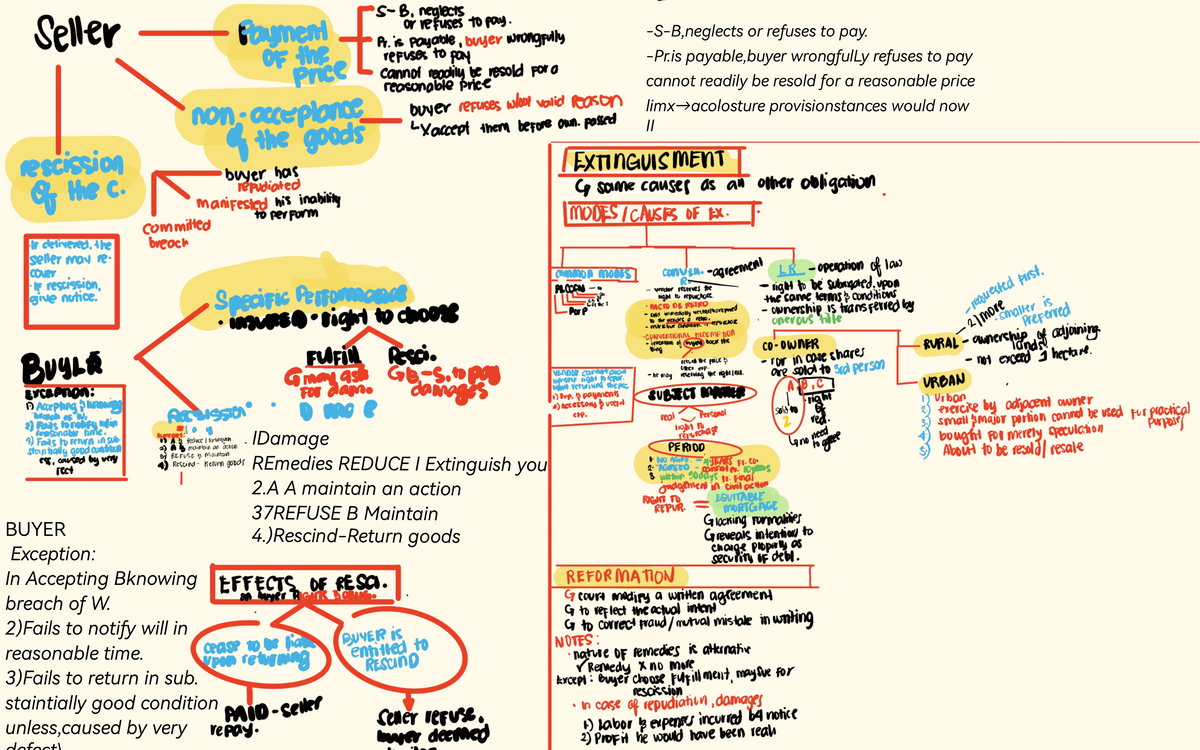 Seller
Payment
OF the
price
S-B, neglects
or refuses to pay.
Pr. is payable, buyer wrongfully
refuses to pay
cannot readily be resold for a
reasonable price
non-acceptance
of the goods
buyer refuses w/out valid reason
X accept them before own. passed
rescission
of the c.
buyer has
repudiated
manifested his inability
to perform
committed
breach
If delivered, the
seller may re-
cover
If rescission,
give notice.
-S-B,neglects or refuses to pay.
-Pr.is payable,buyer wrongfulLy refuses to pay
cannot readily be resold for a reasonable price
limx→acolosture provisionstances would now
II
Specific Performance
right to choose
Fulfill
may ask
For dam.
Resci.
B.-S. to pay
damages
BUYER
Exception:
1) Accepting B knowing
breach of W.
2) Fails to notify w/in
reasonable time.
3) Fails to return in sub-
stantially good condition
caused by very
Rescission
4) Rescind - Return goods
IDamage
REmedies REDUCE I Extinguish you
2.A A maintain an action
37REFUSE B Maintain
4.)Rescind-Return goods
BUYER
Exception:
In Accepting Bknowing
breach of W.
2)Fails to notify will in
reasonable time.
3)Fails to return in sub.
staintially good condition
unless,caused by very
defect)
EFFECTS OF RESCI.
cease to be liable
upon returning
BUYER is
entitled to
RESCIND
PAID - seller
repay.
Seller refuse.
buyer deemed
EXTINGUISMENT
same causes as all other obligation
MODES / CAUSES OF EX.
COMMON MODES
CONVEN. - agreement
R
vendor reserves the
right to repurchase
PACTO DE RETRO
CONVENTIONAL REDEMPTION
LR - operation of law
- right to be subrogated, upon
the same terms & conditions
- ownership is transferred by
onerous title
CO-OWNER
- or in case shares
are sold to 3rd person
A B, C
sold to
Z
right
of
red.
no need
to
agree
RURAL
- requested first.
2/more
- smaller is
preferred
- ownership of adjoining
lands
- not exceed 1 hectare.
URBAN
1) Urban
2) exercise by adjacent owner
3) small & major portion cannot be used for practical
purposes
4) bought for merely speculation
5) About to be resold / resale
SUBJECT MATTER
real
Personal
right to
repurchase
PERIOD
judgement in civil action
RIGHT TO
REPUR.
= EQUITABLE
MORTGAGE
lacking formalities
reveals intention to
charge property as
security of debt.
REFORMATION
court modify a written agreement
to reflect the actual intent
to correct fraud / mutual mistake in writing
NOTES:
· nature of remedies is alternative
✓ Remedy X no more
Except: Buyer choose Fulfillment, may sue for
rescission
· In case of repudiation, damages
1) Labor & expenses incurred b4 notice
2) Profit he would have been reali